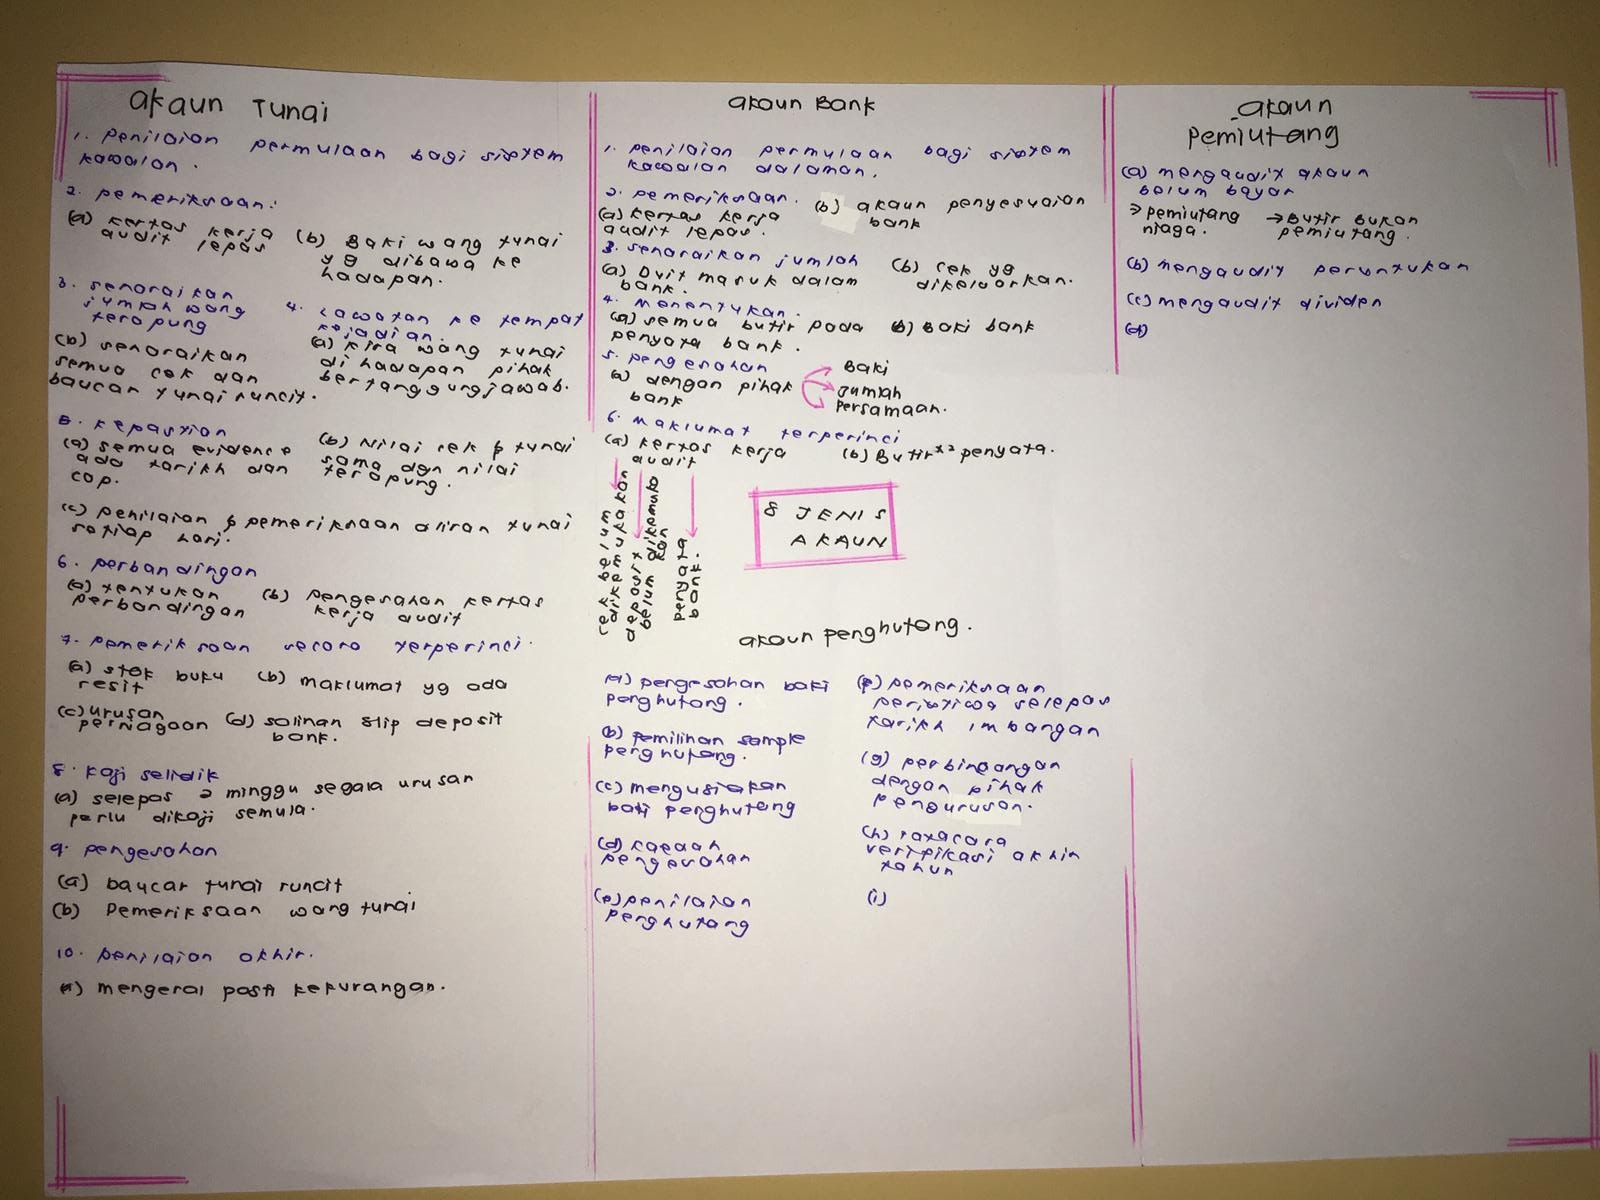 akaun Tunai
1. penilaian permulaan bagi sistem
kawalan.
2. pemeriksaan:
(a) kertas kerja
audit lepas
(b) Baki wang tunai
yg dibawa ke
hadapan.
3. senaraikan
jumlah wang
terapung
(b) senaraikan
semua cek dan
baucar tunai runcit.
4. Lawatan ke tempat
kejadian.
(a) kira wang tunai
di hadapan pihak
bertanggungjawab.
5. kepastian
(a) semua evidence
ada tarikh dan
cop.
(b) Nilai cek & tunai
sama dgn nilai
terapung.
(c) penilaian & pemeriksaan aliran tunai
setiap hari.
6. perbandingan
(a) tentukan
perbandingan
(b) pengesahan kertas
kerja audit
7. pemeriksaan secara terperinci.
(a) stok buku
resit
(b) maklumat yg ada
(c) urusan
perniagaan
(d) salinan slip deposit
bank.
8. kaji selidik
(a) selepas 2 minggu segala urusan
perlu dikaji semula.
9. pengesahan
(a) baucar tunai runcit
(b) Pemeriksaan wang tunai
10. penilaian akhir.
(a) mengenal pasti kekurangan.
akaun Bank
1. penilaian permulaan bagi sistem
kawalan dalaman.
2. pemeriksaan.
(a) kertas kerja
audit lepas.
(b) akaun penyesuaian
bank
3. senaraikan jumlah
(a) Duit masuk dalam
bank.
(b) cek yg
dikeluarkan.
4. menentukan.
(a) semua butir pada
penyata bank.
(b) Baki bank
5. pengesahan
(a) dengan pihak
bank
Baki
Jumlah
Persamaan.
6. maklumat terperinci
(a) kertas kerja
audit
(b) Butir x2 penyata.
cek belum
dikemukakan
deposit
belum dikemuka
kan
penyata
bank.
8 JENIS
AKAUN
akaun penghutang.
(a) pengesahan baki
penghutang.
(b) pemilihan sample
penghutang.
(c) mengusiakan
baki penghutang
(d) kaedah
pengesahan
(e) penilaian
penghutang
(f) pemeriksaan
peristiwa selepas
tarikh imbangan
(g) perbincangan
dengan pihak
pengurusan.
(h) tatacara
verifikasi akhir
tahun
(i)
akaun
pemiutang
(a) mengaudit akaun
belum bayar
→ pemiutang
niaga.
→ Butir bukan
pemiutang.
(b) mengaudit peruntukan
(c) mengaudit dividen
(d)